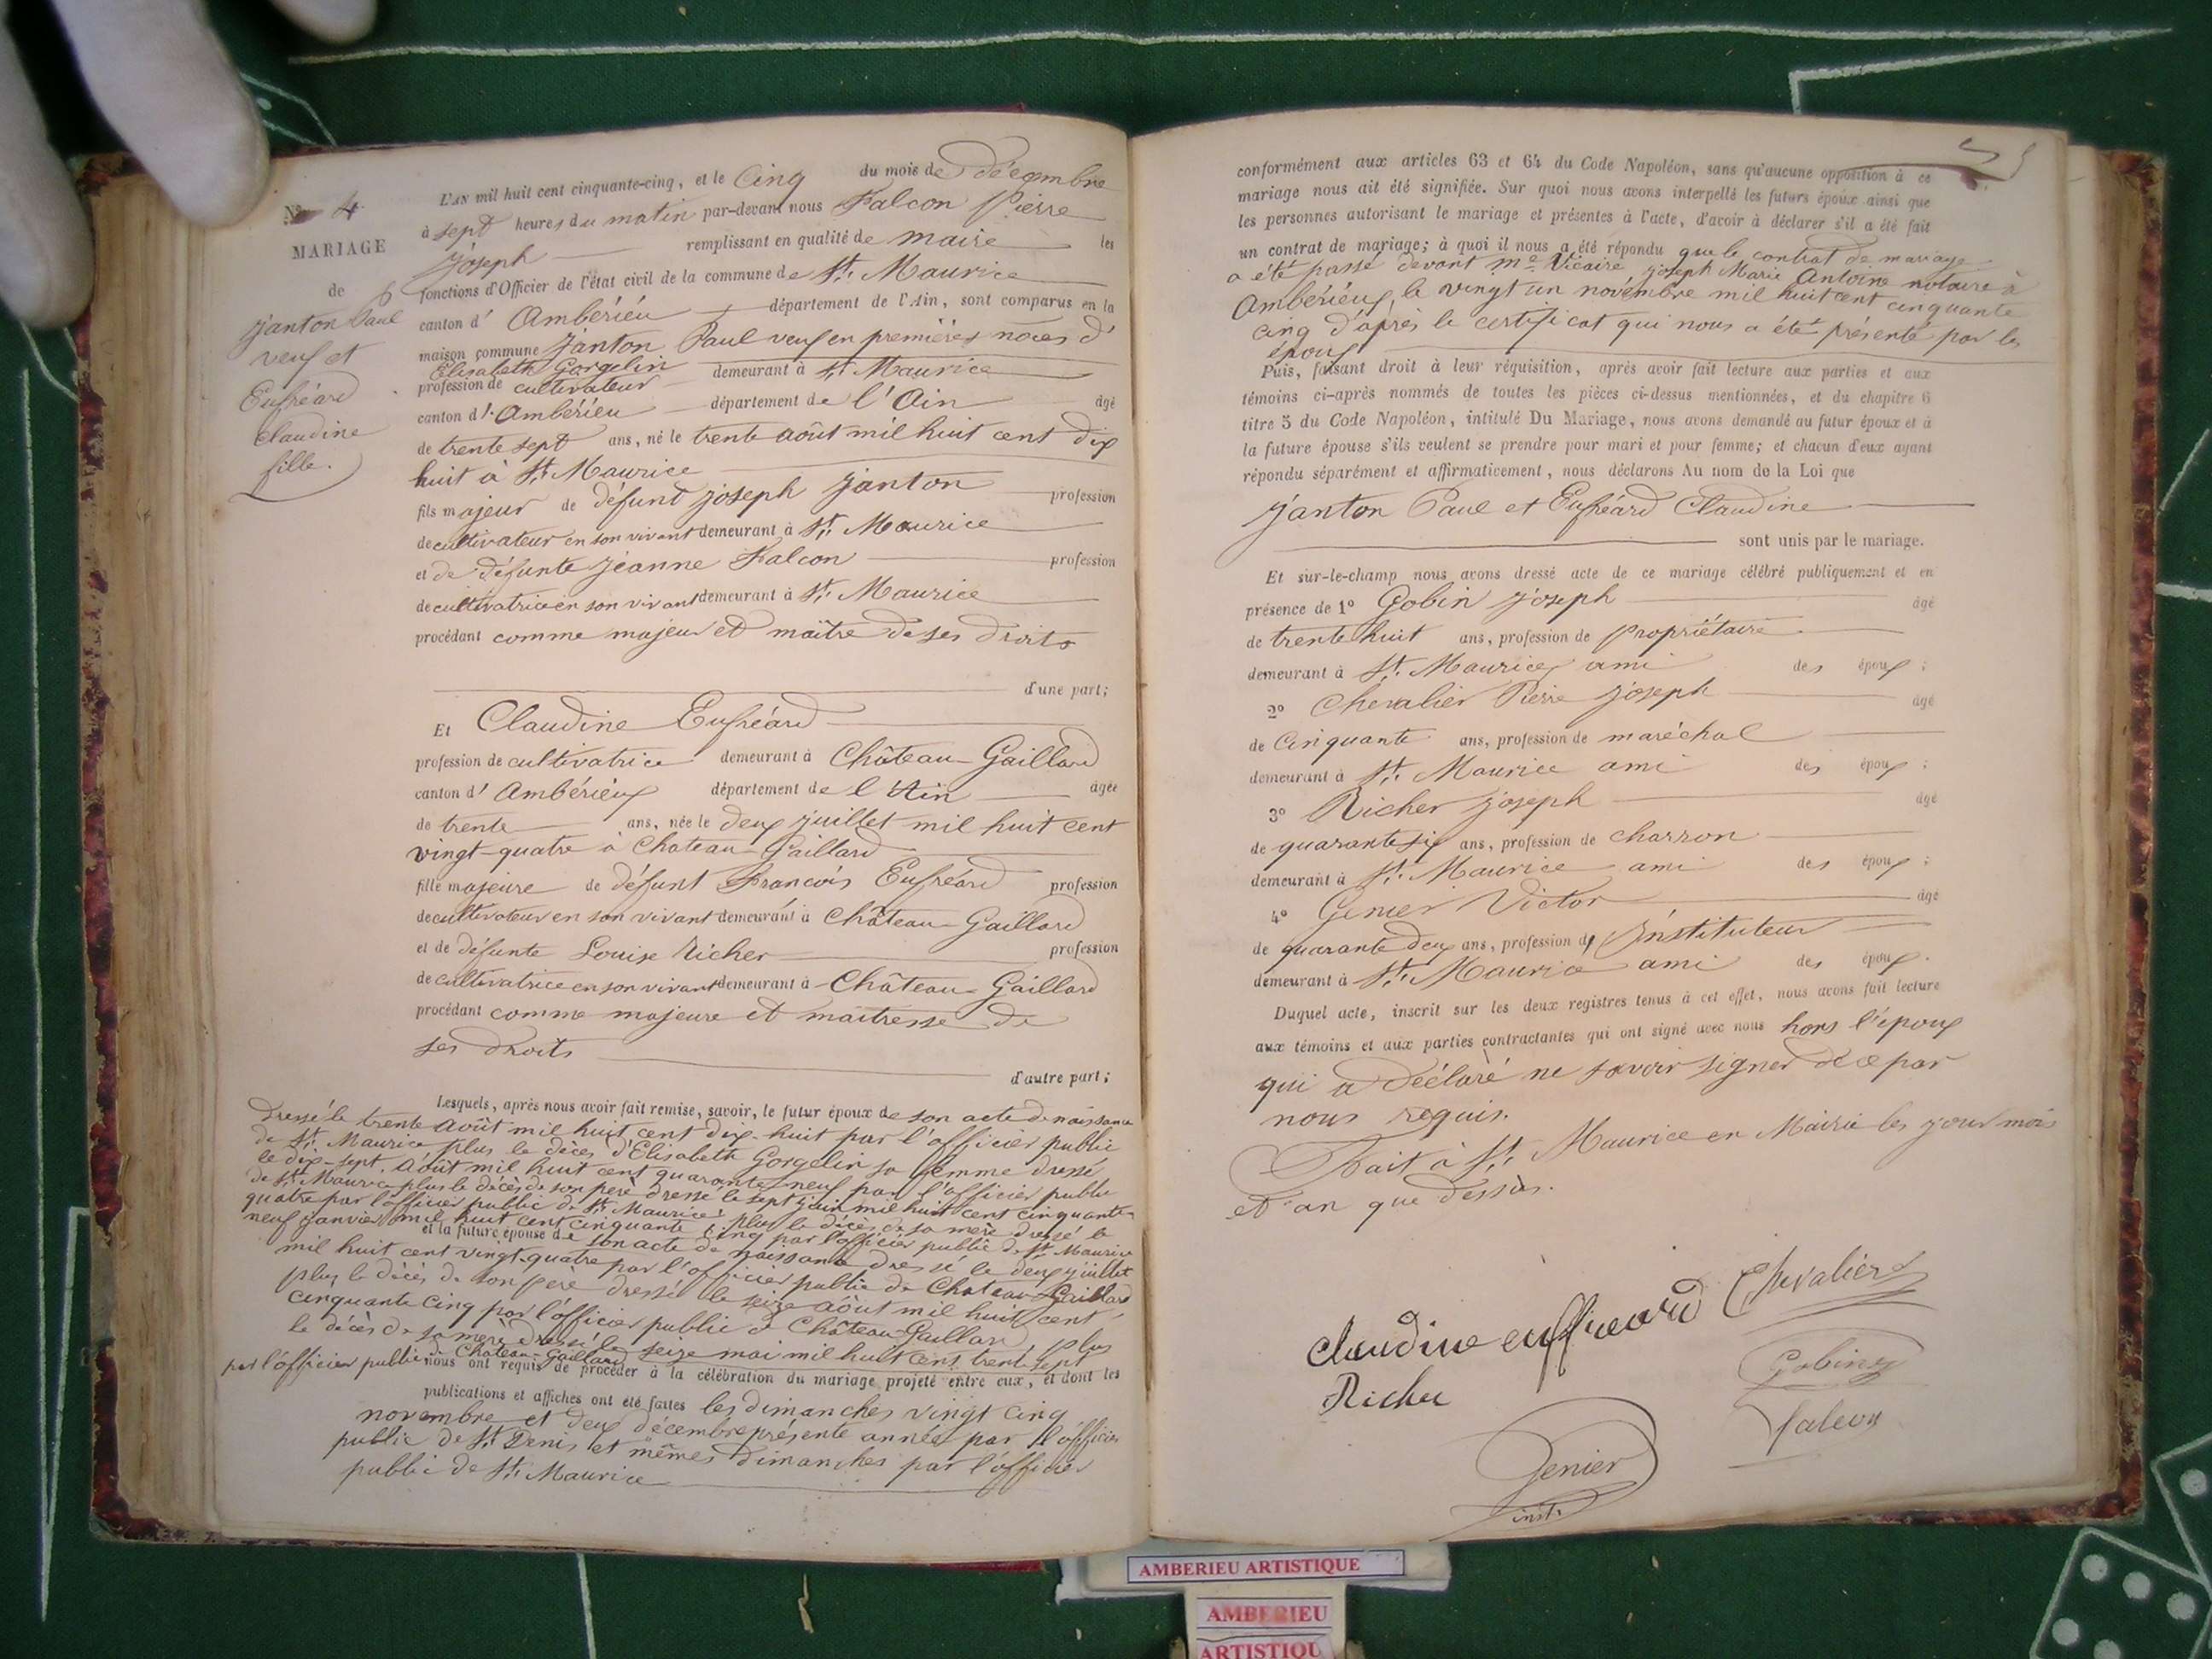 N° 4
MARIAGE
de
Janton Paul
veuf et
Eufréard
Claudine
fille.
L'AN mil huit cent cinquante-cinq, et le Cinq du mois de décembre
à sept heures du matin par-devant nous Falcon Pierre
Joseph remplissant en qualité de maire les
fonctions d'Officier de l'état civil de la commune de St. Maurice
canton d' Ambérieu département de l'Ain, sont comparus en la
maison commune Janton Paul veuf en premières noces d'
Elisabeth Gorgelin
profession de cultivateur demeurant à St. Maurice
canton d' Ambérieu département de l'Ain âgé
de trente sept ans, né le trente août mil huit cent dix
huit à St. Maurice
fils majeur de défunt joseph Janton profession
de cultivateur en son vivant demeurant à St. Maurice
et de défunte Jeanne Falcon profession
de cultivatrice en son vivant demeurant à St. Maurice
procédant comme majeur et maître de ses droits
d'une part;
Et Claudine Eufréard
profession de cultivatrice demeurant à Château-Gaillard
canton d' Ambérieux département de l'Ain âgée
de trente ans, née le deux juillet mil huit cent
vingt-quatre à Chateau-Gaillard
fille majeure de défunt Francois Eufréard profession
de cultivateur en son vivant demeurant à Château-Gaillard
et de défunte Louise Richer profession
de cultivatrice en son vivant demeurant à Château-Gaillard
procédant comme majeure et maitresse de
ses droits
d'autre part;
Lesquels, après nous avoir fait remise, savoir, le futur époux de son acte de naissance
dressé le trente août mil huit cent dix-huit par l'officier public
de St. Maurice plus le décès d'Elisabeth Gorgelin sa femme dressé
le dix-sept août mil huit cent quarante-neuf par l'officier public
de St. Maurice plus le décès de son père dressé le sept juin mil huit cent cinquante-
quatre par l'officier public de St. Maurice; plus le décès de sa mère dressé le
neuf janvier mil huit cent cinquante cinq par l'officier public de St. Maurice
et la future épouse de son acte de naissance dressé le deux juillet
mil huit cent vingt-quatre par l'officier public de Chateau-Gaillard
plus le décès de son père dressé le seize août mil huit cent
cinquante cinq par l'officier public de Château-Gaillard, plus
le décès de sa mère dressé le seize mai mil huit cent trente sept
par l'officier public de Château-Gaillard
nous ont requis de procéder à la célébration du mariage projeté entre eux, et dont les
publications et affiches ont été faites les dimanches vingt cinq
novembre et deux décembre présente année par l'officier
public de St. Denis et mêmes dimanches par l'officier
public de St. Maurice
conformément aux articles 63 et 64 du Code Napoléon, sans qu'aucune opposition à ce
mariage nous ait été signifiée. Sur quoi nous avons interpellé les futurs époux ainsi que
les personnes autorisant le mariage et présentes à l'acte, d'avoir à déclarer s'il a été fait
un contrat de mariage; à quoi il nous a été répondu que le contrat de mariage
a été passé devant Me. Vicaire, joseph Marie Antoine notaire à
Ambérieux, le vingt un novembre mil huit cent cinquante
cinq d'après le certificat qui nous a été présenté par les
époux
Puis, faisant droit à leur réquisition, après avoir fait lecture aux parties et aux
témoins ci-après nommés de toutes les pièces ci-dessus mentionnées, et du chapitre 6
titre 5 du Code Napoléon, intitulé Du Mariage, nous avons demandé au futur époux et à
la future épouse s'ils veulent se prendre pour mari et pour femme; et chacun d'eux ayant
répondu séparément et affirmativement, nous déclarons Au nom de la Loi que
Janton Paul et Eufréard Claudine
sont unis par le mariage.
Et sur-le-champ nous avons dressé acte de ce mariage célébré publiquement et en
présence de 1° Gobin joseph âgé
de trente huit ans, profession de propriétaire
demeurant à St. Maurice, ami des époux;
2° Chevalier Pierre joseph âgé
de Cinquante ans, profession de maréchal
demeurant à St. Maurice ami des époux;
3° Richer joseph âgé
de quarante six ans, profession de charron
demeurant à St. Maurice ami des époux;
4° Genier Victor âgé
de quarante deux ans, profession d' Instituteur
demeurant à St. Maurice ami des époux.
Duquel acte, inscrit sur les deux registres tenus à cet effet, nous avons fait lecture
aux témoins et aux parties contractantes qui ont signé avec nous hors l'époux
qui a déclaré ne savoir signer de ce par
nous requis.
Fait à St. Maurice en Mairie les jour mois
et an que dessus.
Claudine euffreard Chevalier
Richer Gobin
Falcon
Genier
inst.
AMBERIEU ARTISTIQUE
AMBERIEU
ARTISTIQU